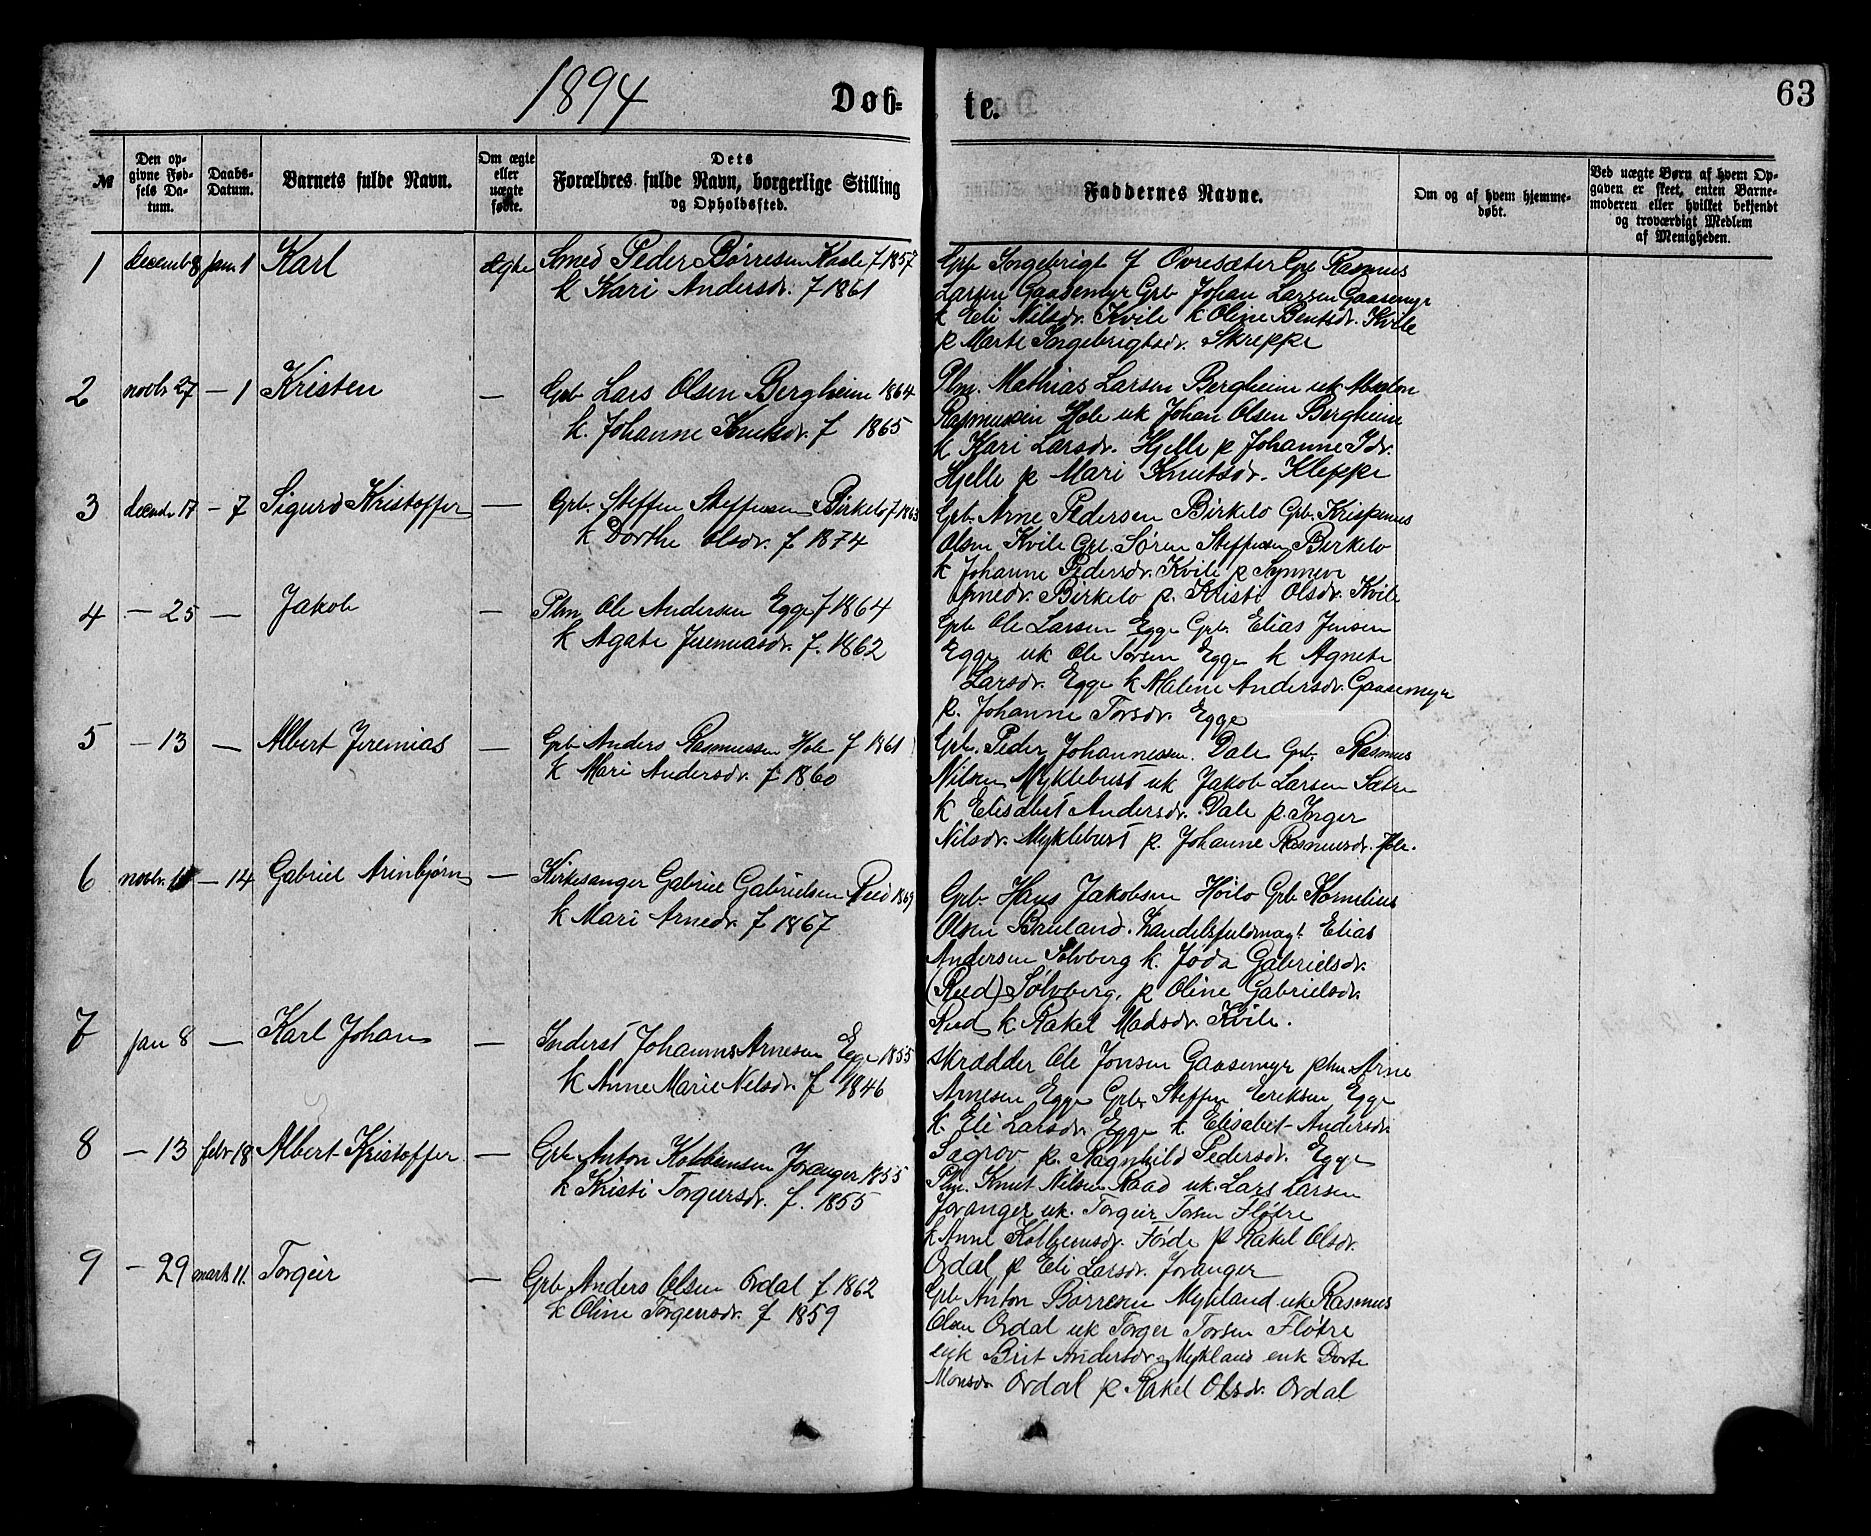 1894
Døb-
te.
63
№
Den op-
givne Fød-
sels Da-
tum.
Daabs-
Datum.
Barnets fulde Navn.
Om ægte
eller
uægte
fødte.
Dets
Forældres fulde Navn, borgerlige Stilling
og Opholdssted.
Faddernes Navne.
Om og af hvem hjemme-
døbt.
Ved uægte Børn af hvem Op-
gaven er skeet, enten Barne-
moderen eller hvilket bekjendt
og troværdigt Medlem
af Menigheden.
1 decemb 8 jan 1 Karl ægte Smed Peder Børresen f 1857
k Kari Andersdr. f 1861
Grb Ingebrigt J Øvresæter Grb Rasmus
Larsen Gaasemyr Grb Johan Larsen Gaasemyr
k Eli Nilsdr. Kvile k Oline Bentsdr. Kvile
p Marte Ingebrigtsdr. Skreppe
2 novbr 27 — 1 Kristen — Grb Lars Olsen Bergheim 1864
k. Johanne Knutsdr. f 1865
Plm. Mathias Larsen Bergheim uk Absalon
Rasmussen Hole uk Johan Olsen Bergheim
k Kari Larsdr. Hjelle p Johanne Idr.
Hjelle p Mari Knutsdr. Kleppe
3 decbr 17 — 7 Sigurd Kristoffer — Grb. Steffen Steffensen Birkelo f 1863
k Dorthe Olsdr. f 1874
Grb. Arne Pedersen Birkelo Grb. Krispinus
Olsen Kvile Grb. Søren Steffensen Birkelo
k Johanne Pedersdr. Kvile p Synneve
Arnedr. Birkelo p. Kristi Olsdr. Kvile
4 — 25 — Jakob — Plm. Ole Andersen Egge f 1864
k Agate Jeremiasdr. f. 1862
Grb Ole Larsen Egge Grb. Elias Jensen
Egge uk Ole Torsen Egge k Agnete
Larsdr. Egge k Malene Andersdr. Gaasemyr
p. Johanne Torsdr. Egge
5 — 13 — Albert Jeremias — Grb Anders Rasmussen Hole f 1861
k Mari Andersdr. f. 1860
Grb. Peder Johannessen Dale Grb. Rasmus
Nilsen Myklebust uk Jakob Larsen Sætre
k Elisabet Andersdr. Dale p. Inger
Nilsdr. Myklebust p. Johanne Rasmusdr. Hole.
6 novbr. — 14 Gabriel Arinbjørn — Kirkesanger Gabriel Gabrielsen Reed 1869
k Mari Arnedr. f 1867
Grb. Hans Jakobsen Høilo Grb Kornelius
Olsen Bruland. Handelsfuldmægt. Elias
Andersen Sølvberg k. Joda Gabrielsdr.
(Reed) Sølvberg, p Oline Gabrielsdr.
Reed k Rakel Madsdr. Kvile.
7 jan 8 — Karl Johan — Inderst Johannes Arnesen Egge 1855
k Anne Marie Nelsdr. f 1846
Skrædder Ole Jonsen Gaasemyr plm Arne
Arnesen Egge Grb. Steffen Eriksen Egge
k. Eli Larsdr. Egge k. Elisabet Andersdr.
Søgrov p. Ragnhild Pedersdr. Egge
8 — 13 febr 18 Albert Kristoffer — Grb Anton Kolbensen Joranger 1855
k Kristi Torgeirsdr. f. 1855
Plm. Knut Nilsen Raad uk. Lars Larsen
Joranger uk. Torgeir Torsen Fløtre
k Anne Kolbensdr. Førde p Rakel Olsdr.
Ordal p Eli Larsdr. Joranger
9 — 29 marts 11. Torgeir — Grb Anders Olsen Ordal f 1862
k Oline Torgeirsdr. f 1859
Grb Anton Børresen Mykland uk Rasmus
Olsen Ordal uk Torger Torsen Fløtre
enk Brit Andersdr. Mykland enk Dorte
Monsdr. Ordal p Rakel Olsdr. Ordal